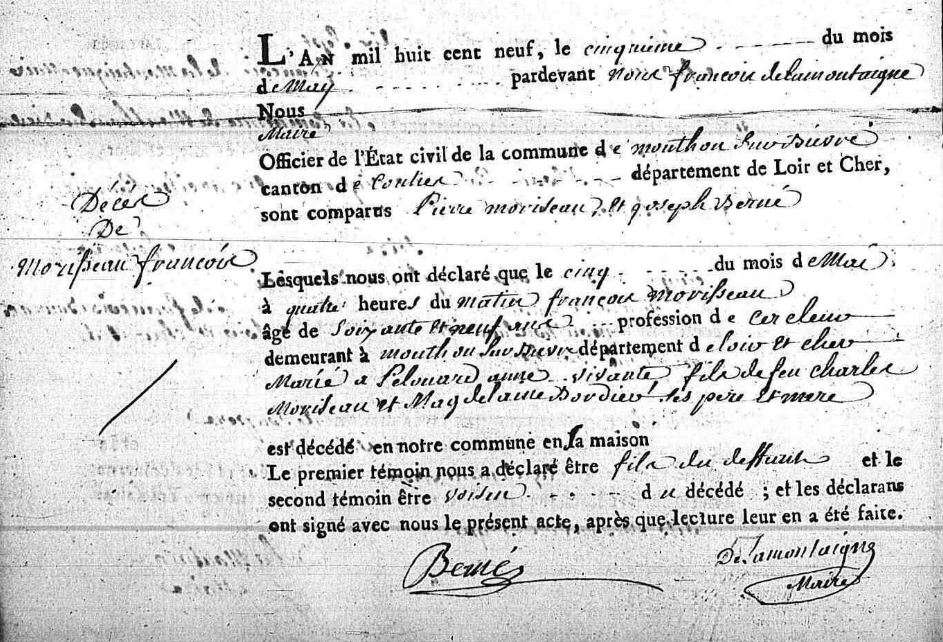 L'AN mil huit cent neuf, le cinquieme du mois
de May pardevant nous francois delamontaigne
Nous
Maire
Officier de l'État civil de la commune de monthou Sur Bievre
canton de Contres département de Loir et Cher,
sont comparus Pierre moriseau, et joseph Berné
Décés
De
Morisseau francois
Lesquels nous ont déclaré que le cinq du mois de Mai
à quatre heures du matin francois morisseau
âgé de soixante et neuf ans profession de cercleur
demeurant à monthou Sur Bievre département de loir et cher
Marié a Pelouard anne vivante, fils de feu charles
Moriseau et Magdelaine Bordier ses pere et mere
est décédé en notre commune en sa maison
Le premier témoin nous a déclaré être fils du deffunt et le
second témoin être voisin du décédé ; et les déclarans
ont signé avec nous le présent acte, après que lecture leur en a été faite.
Berné
Delamontaigne
Maire